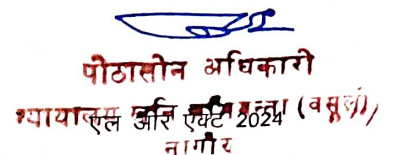 पीठासीन अधिकारी
न्यायालय (वसूली)
एल आर एक्ट 2024
नागौर